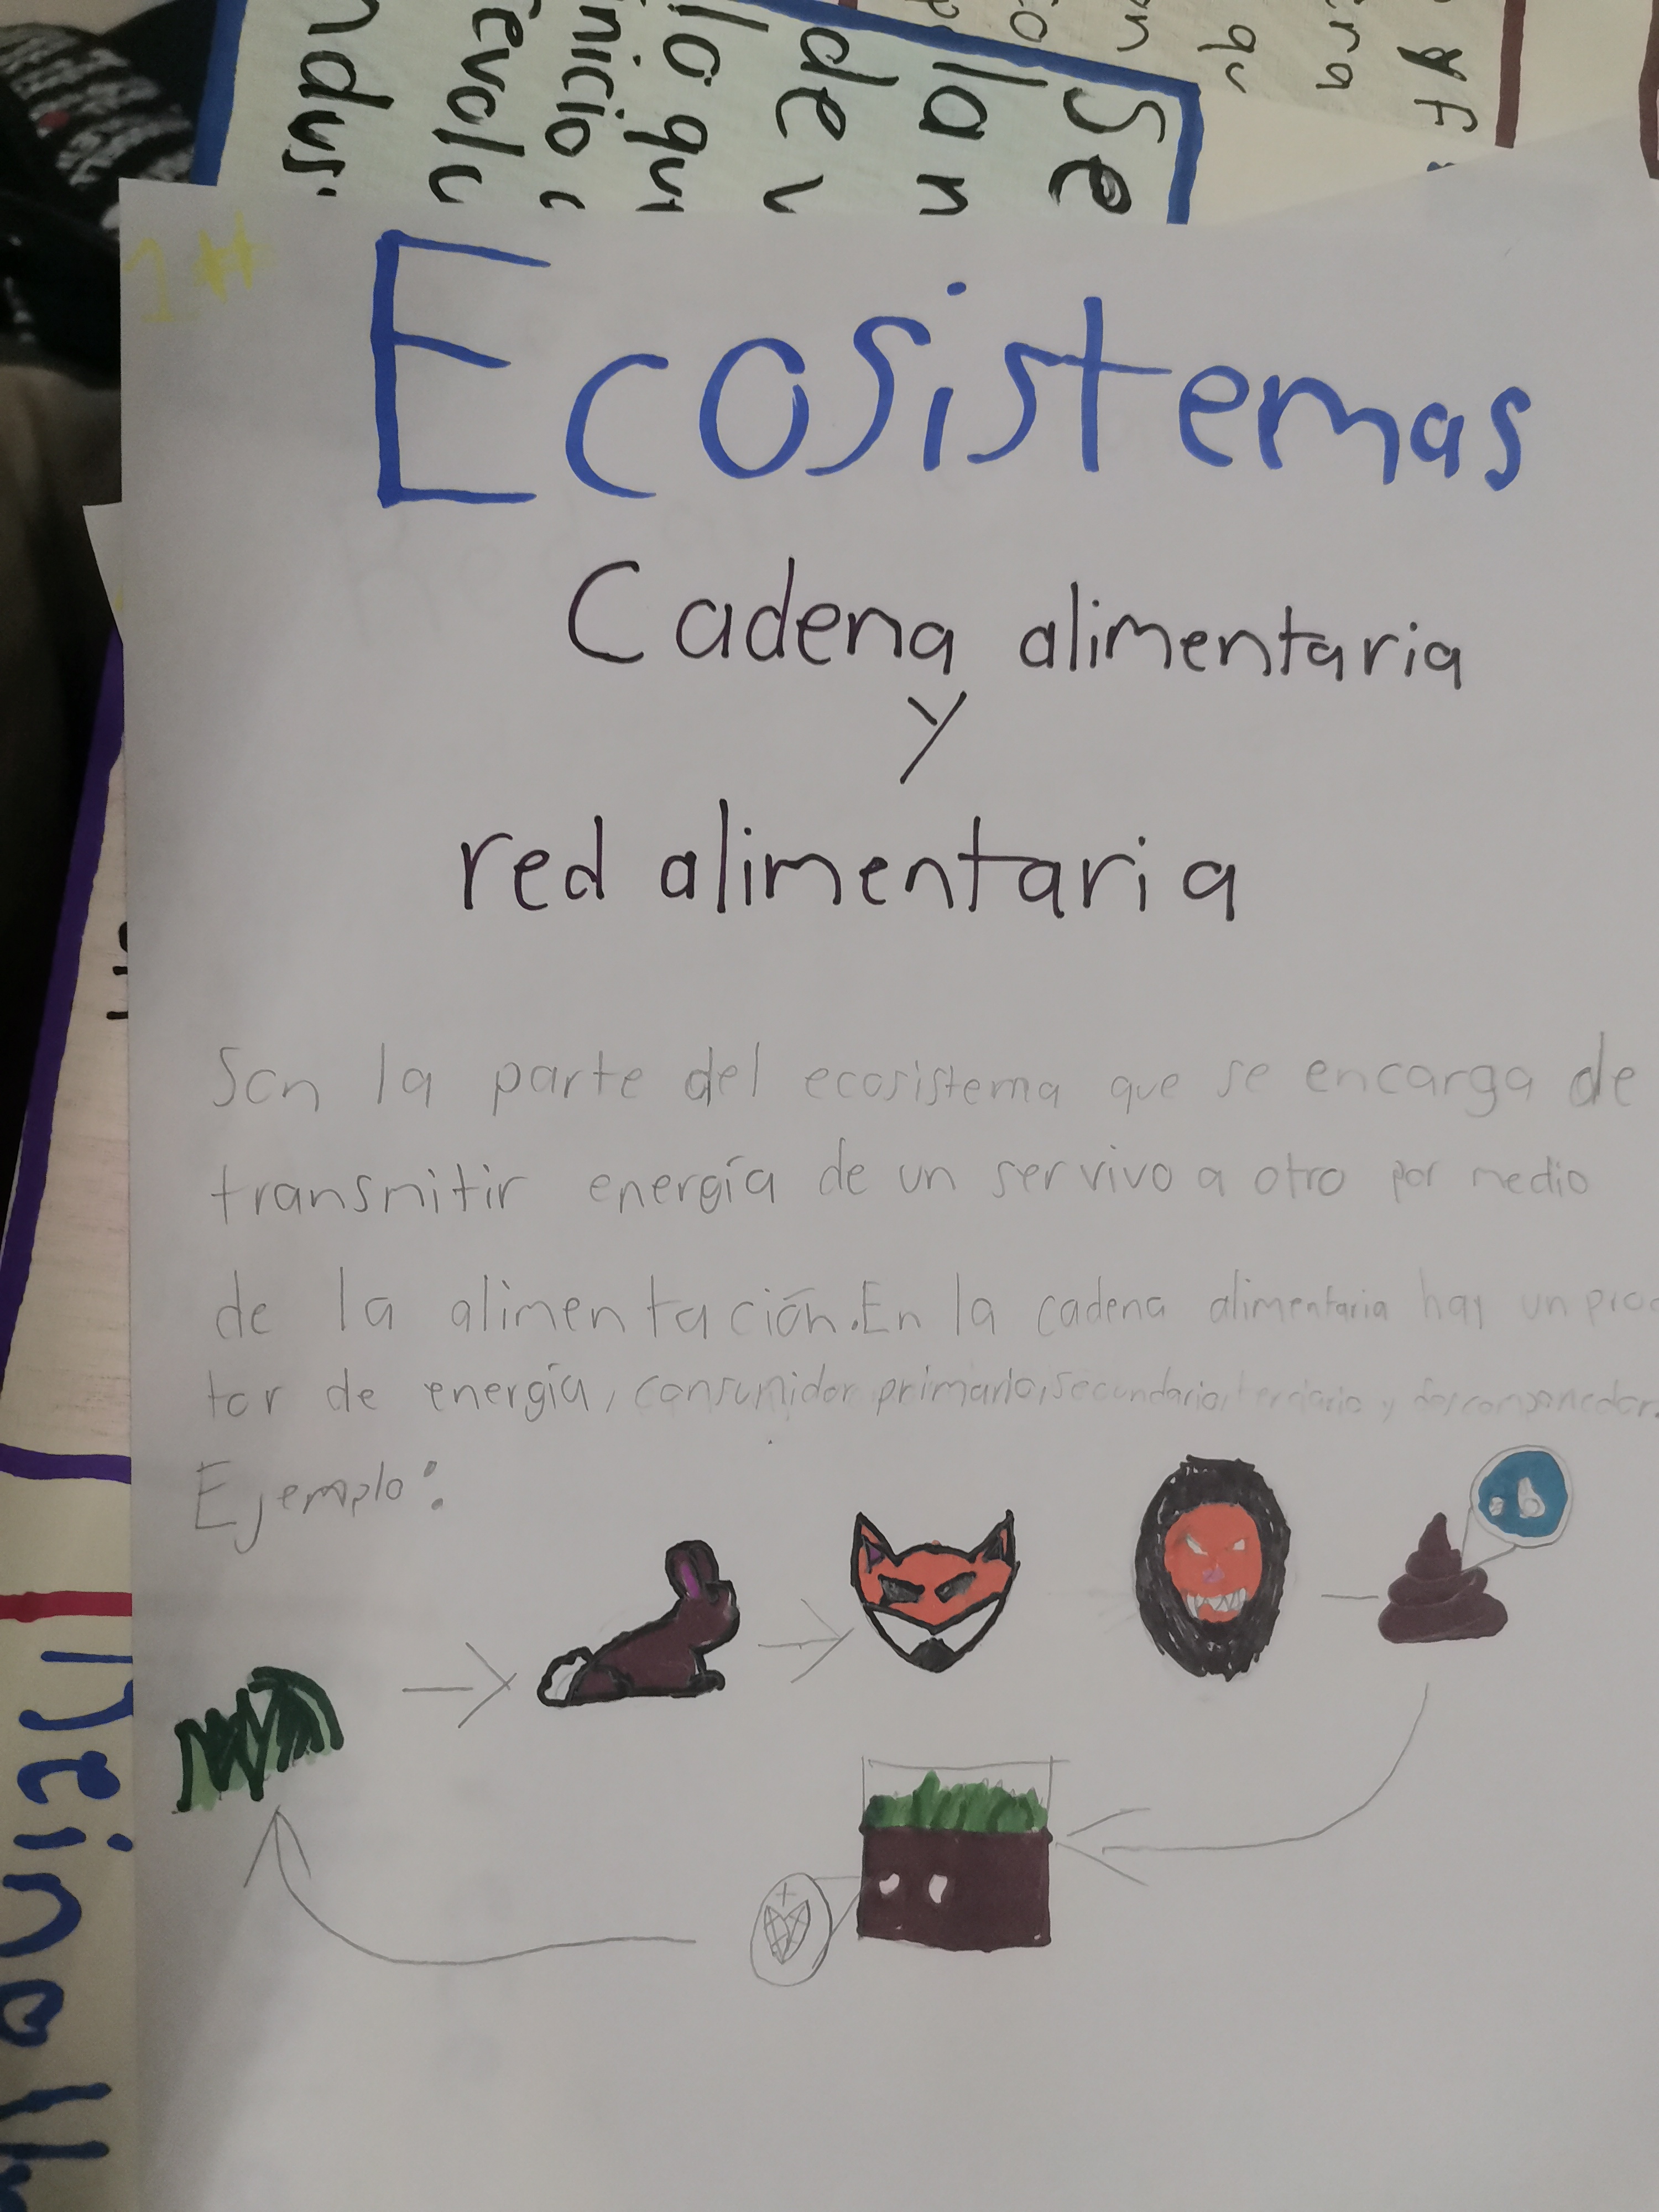 Se
lan
de
lo qu
nicio
evolu
ndus
1#
Ecosistemas
Cadena alimentaria
y
red alimentaria
Son la parte del ecosistema que se encarga de
transmitir energía de un ser vivo a otro por medio
de la alimentación. En la cadena alimentaria hay un
tor de energía, consumidor primario, secundario, terciario y
Ejemplo: